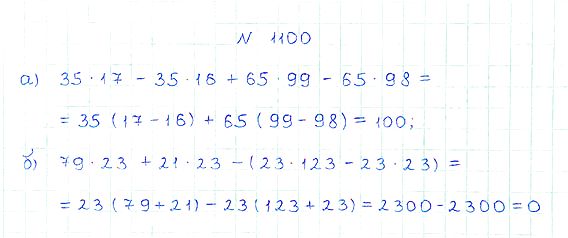 N 1100
а) 35·17 - 35·16 + 65·99 - 65·98 =
= 35 (17-16) + 65 (99-98) = 100;
б) 79·23 + 21·23 - (23·123 - 23·23) =
= 23 (79+21) - 23 (123+23) = 2300-2300 = 0